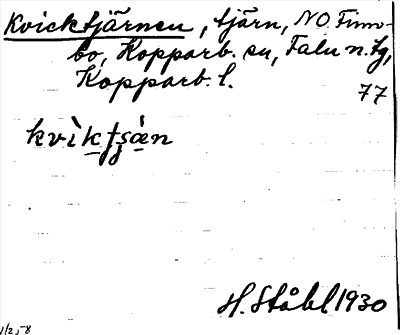 Kvicktjärnen, tjärn, NO. Finnbo, Kopparb. sn, Falu n. tg,
Kopparb. l.
77
kvìktṣá̤n
H. Ståhl 1930